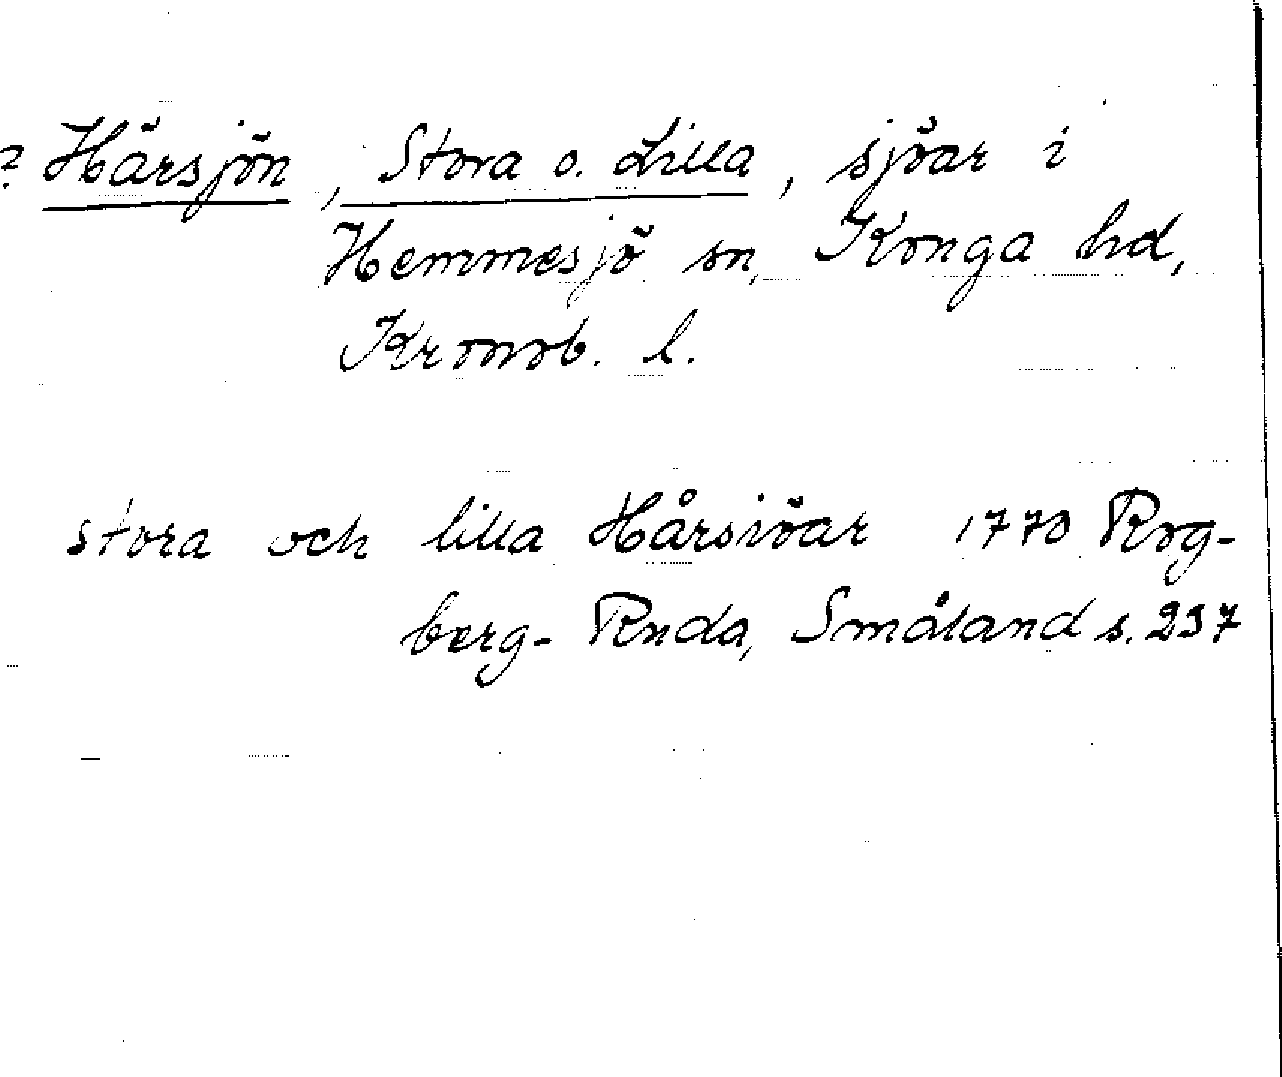 ? Härsjön, Stora o. Lilla, sjöar i
Hemmesjö sn, Konga hd,
Kronob. l.
stora och lilla Hårsiöar 1770 Rog-
berg-Ruda, Småland s. 237